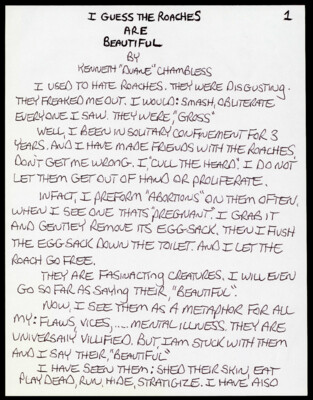 I GUESS THE ROACHES 1
ARE
BEAUTIFUL
BY
KENNETH "DUANE" CHAMBLESS
I USED TO HATE ROACHES. THEY WERE DISGUSTING.
THEY FREAKED ME OUT. I WOULD: SMASH, OBLITERATE
EVERYONE I SAW. THEY WERE, "GROSS"
WELL, I BEEN IN SOLITARY CONFINEMENT FOR 3
YEARS. AND I HAVE MADE FRIENDS WITH THE ROACHES.
DON'T GET ME WRONG. I, "CULL THE HEARD". I DO NOT
LET THEM GET OUT OF HAND OR PROLIFERATE.
INFACT, I PREFORM "ABORTIONS" ON THEM OFTEN.
WHEN I SEE ONE THATS "PREGNANT". I GRAB IT
AND GENTLEY REMOVE ITS EGG-SACK. THEN I FLUSH
THE EGG-SACK DOWN THE TOILET. AND I LET THE
ROACH GO FREE.
THEY ARE FASINACTING CREATURES. I WILL EVEN
GO SO FAR AS SAYING THEIR, "BEAUTIFUL".
NOW, I SEE THEM AS A METAPHOR FOR ALL
MY: FLAWS, VICES, .... MENTAL ILLNESS. THEY ARE
UNIVERSALLY VILLIFIED. BUT, I AM STUCK WITH THEM
AND I SAY THEIR, "BEAUTIFUL"
I HAVE SEEN THEM: SHED THEIR SKIN, EAT
PLAY DEAD, RUN, HIDE, STRATIGIZE. I HAVE ALSO